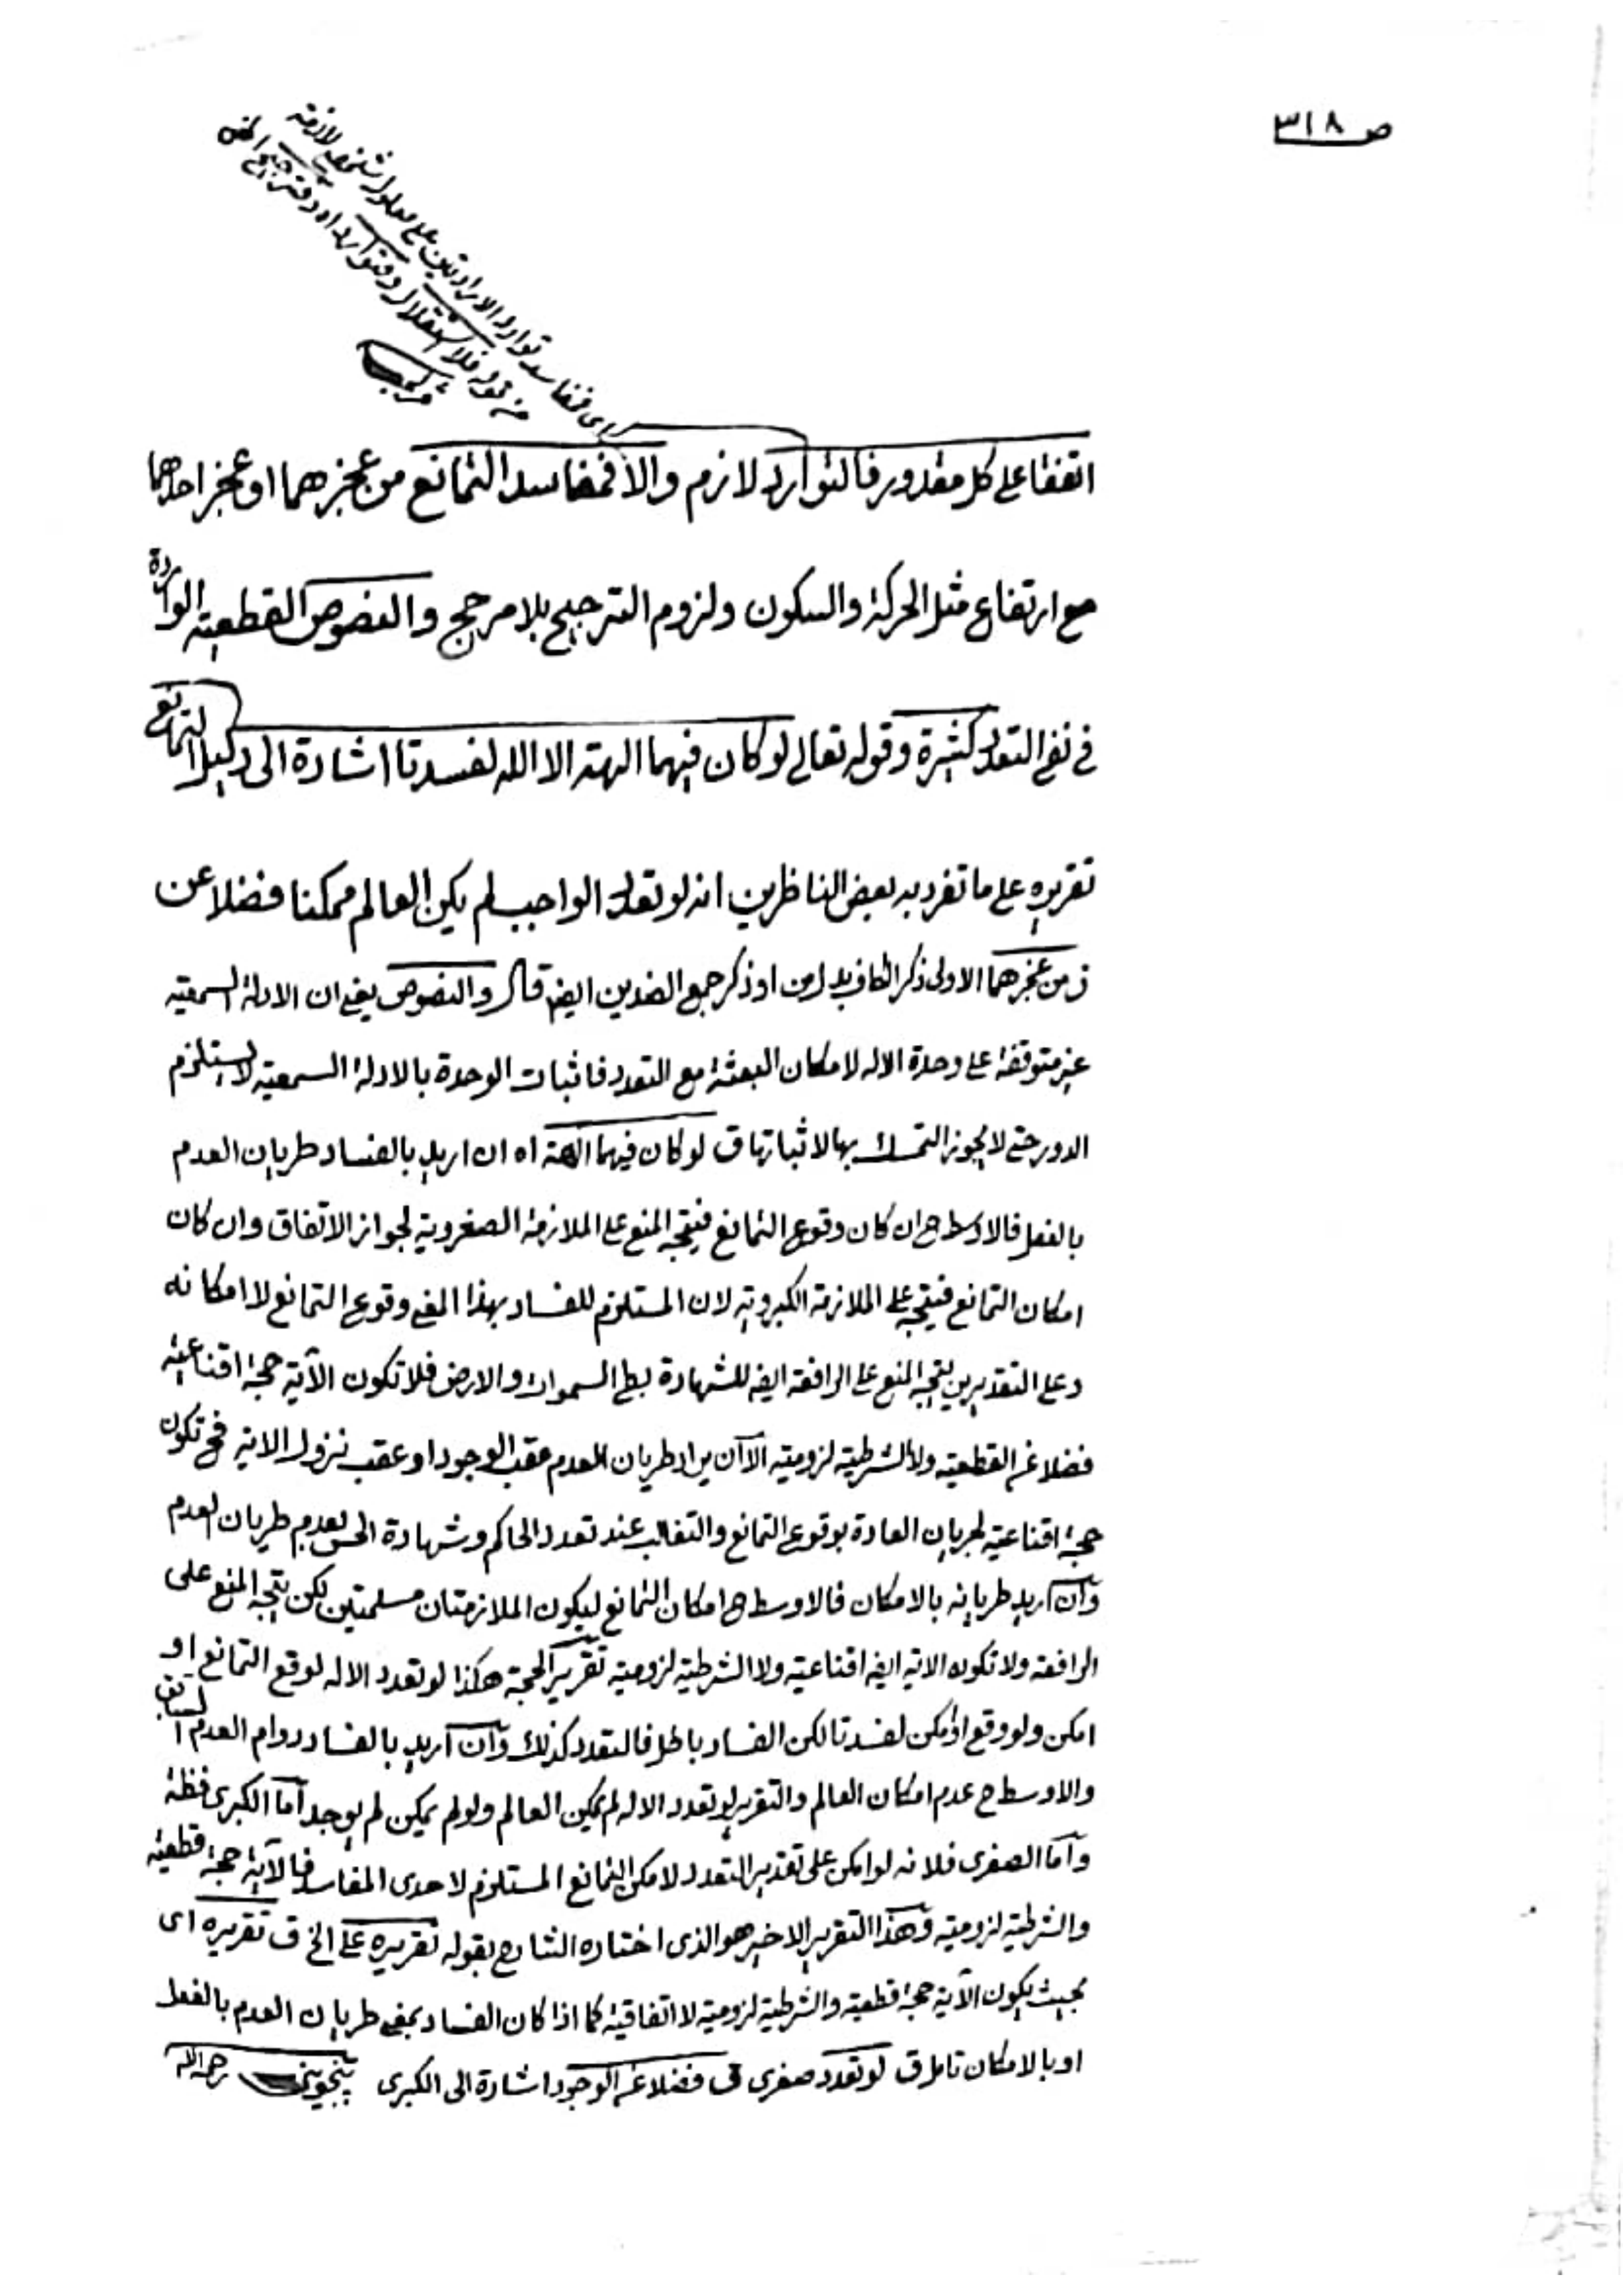 ص ٣١٨
اى فمفاسد توارد الارادتين على معلول شخصى لازمة
من قوله فلا استقلال وتوارد اه وترجيح
اتفقا على كل مقدور فالتوارد لازم والا فمفاسد التمانع من عجزهما او عجز احدهما
مع ارتفاع مثل الحركة والسكون ولزوم الترجيح بلا مرجح والنصوص القطعية الواردة
فى نفى التعدد كثيرة وقوله تعالى لو كان فيهما الهة الا الله لفسدتا اشارة الى دليل التمانع
تقريره على ما تفرد به بعض الناظرين انه لو تعدد الواجب لم يكن العالم ممكنا فضلا عن
ق من عجزهما الاولى ذكر الكاف بدل من او ذكر جمع الضدين ايضا قال والنصوص يعنى ان الادلة السمعية
غير متوقفة على وحدة الاله لامكان البعثة مع التعدد فاثبات الوحدة بالادلة السمعية لا يستلزم
الدور حتى لا يجوز التمسك بها لاثباتها ق لو كان فيهما الهة اه ان اريد بالفساد طريان العدم
بالفعل فالاوسط ح ان كان وقوع التمانع فيتجه المنع على الملازمة الصغروية لجواز الاتفاق وان كان
امكان التمانع فيتجه على الملازمة الكبروية لان المستلزم للفساد بهذا المعنى وقوع التمانع لا امكانه
وعلى التقديرين يتجه المنع على الرافعة ايضا للشهادة بطى السموات والارض فلا تكون الآية حجة اقناعية
فضلا عن القطعية ولا الشرطية لزومية الا ان يراد طريان العدم عقب الوجود او عقب نزول الاية فح تكون
حجة اقناعية لجريان العادة بوقوع التمانع والتغالب عند تعدد الحاكم وشهادة الحس بعدم طريان العدم
وان اريد طريانه بالامكان فالاوسط ح امكان التمانع ليكون الملازمتان مسلمتين لكن يتجه المنع على
الرافعة ولا تكون الاية ايضا اقناعية ولا الشرطية لزومية تقرير الحجة هكذا لو تعدد الاله لوقع التمانع او
امكن ولو وقع او امكن لفسدتا لكن الفساد باطل فالتعدد كذلك وان اريد بالفساد دوام العدم السابق
والاوسط ح عدم امكان العالم والتقرير لو تعدد الاله لم يمكن العالم ولو لم يمكن لم يوجد اما الكبرى فظة
واما الصغرى فلانه لو امكن على تقدير التعدد لامكن التمانع المستلزم لاحدى المفاسد فالآية حجة قطعية
والشرطية لزومية وهذا التقرير الاخير هو الذى اختاره الشارح بقوله تقريره على الخ ق تقريره اى
بحيث يكون الآية حجة قطعية والشرطية لزومية لا اتفاقية كما اذا كان الفساد بمعنى طريان العدم بالفعل
او بالامكان تامل ق لو تعدد صغرى ق فضلا عن الوجود اشارة الى الكبرى پنجوينى رحمه الله